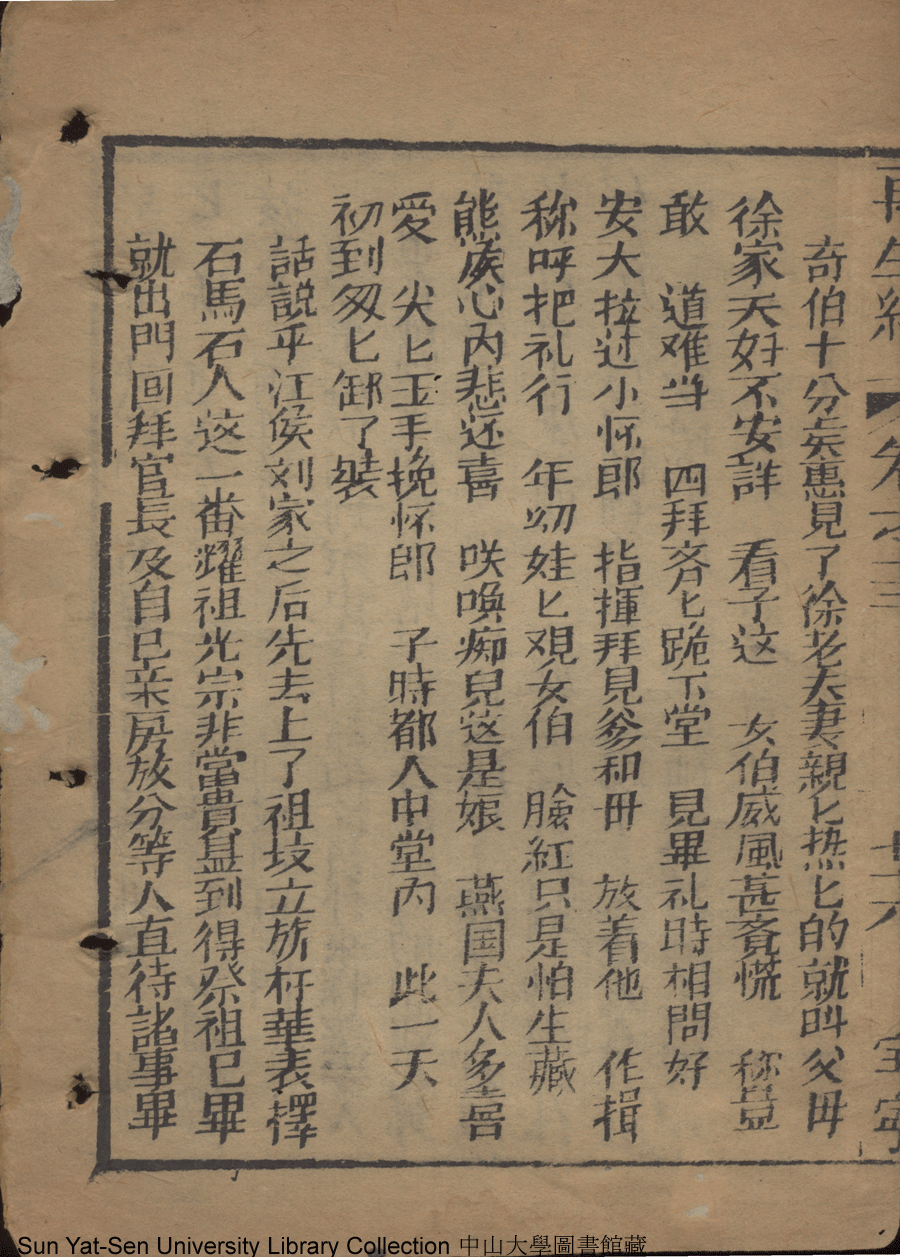 再生緣 卷之三 十六 宝寧
奇伯十分矣惠見了徐老夫妻親匕热匕的就叫父毋
徐家夭妇不安詳 看子这 女伯威風甚麦慌 称豈
敢 道难当 四拜斉匕跪下堂 見畢礼時相問好
安大拉过小怀郎 指揮拜見爹和毋 放着他 作揖
称呼把礼行 年幼娃匕覌女伯 臉紅只是怕生藏
熊侯心内悲还喜 咲喚痴兒这是娘 燕国夫人多喜
愛 尖匕玉手挽怀郎 子時都人中堂内 此一天
初到匆匕卸了裝
話説平江侯刘家之后先去上了祖坟立旂杆華表擇
石馬石人这一番耀祖光宗非當貴益到得祭祖已畢
就出門回拜官長及自已亲房放分等人直待諸事畢
Sun Yat-Sen University Library Collection 中山大學圖書館藏